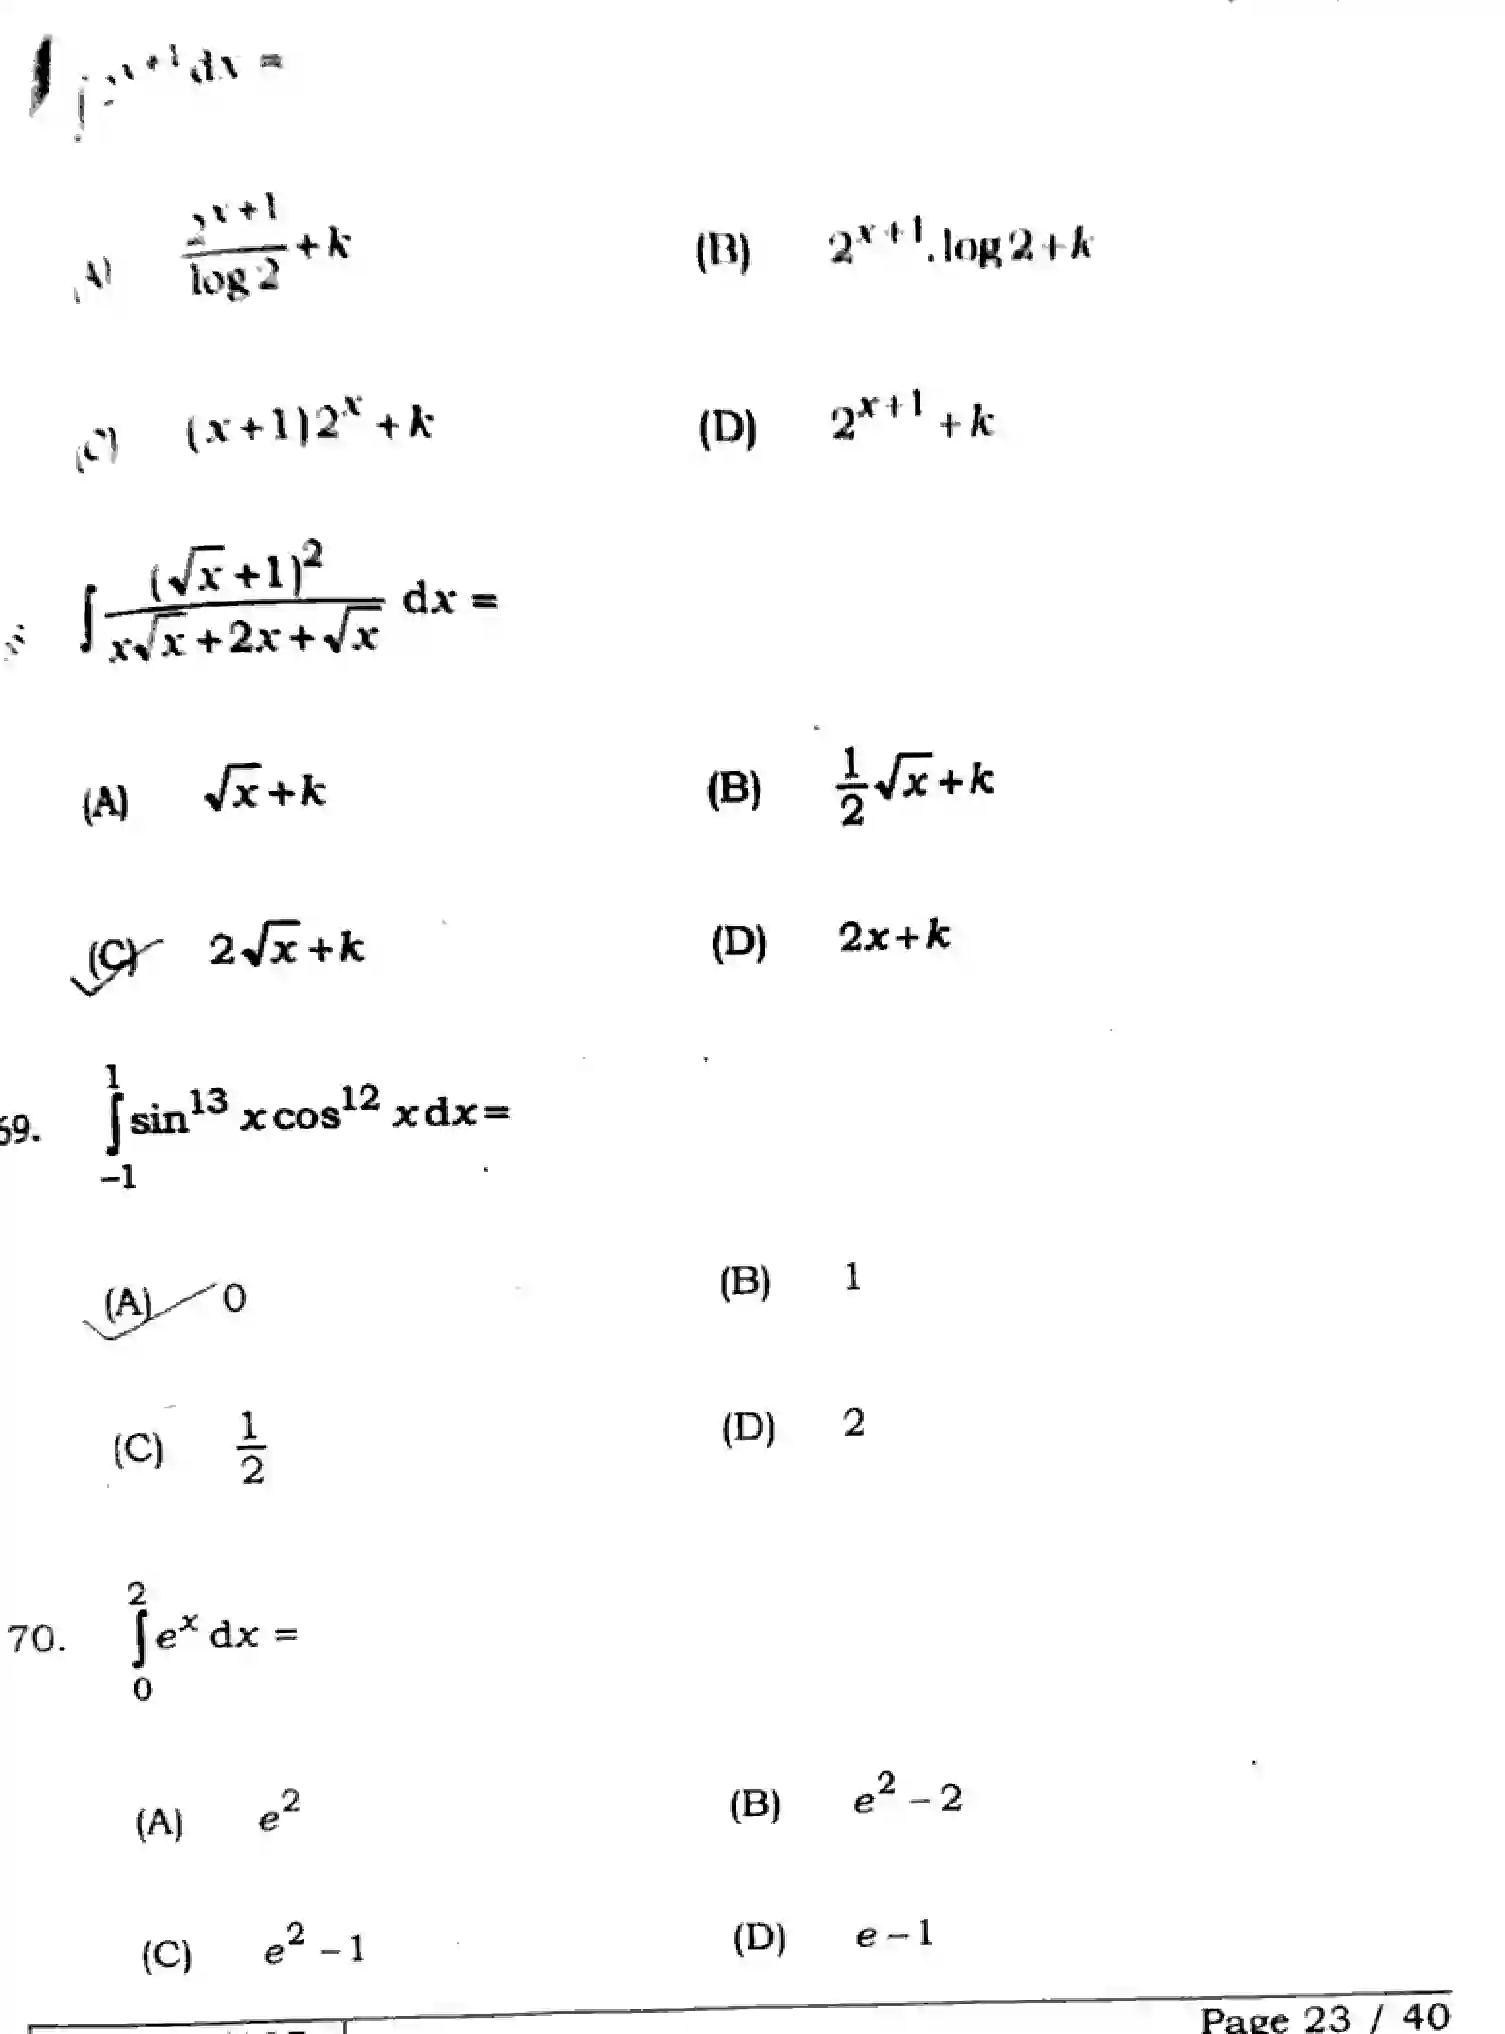 ∫2^{x+1} dx =
(A) \frac{2^{x+1}}{log 2} + k (B) 2^{x+1}.log 2 + k
(C) (x+1)2^x + k (D) 2^{x+1} + k
∫ \frac{(√x+1)^2}{x√x+2x+√x} dx =
(A) √x + k (B) \frac{1}{2}√x + k
(C) 2√x + k (D) 2x + k
69. ∫_{-1}^{1} sin^{13} x cos^{12} x dx =
(A) 0 (B) 1
(C) \frac{1}{2} (D) 2
70. ∫_{0}^{2} e^x dx =
(A) e^2 (B) e^2 – 2
(C) e^2 – 1 (D) e – 1
Page 23 / 40